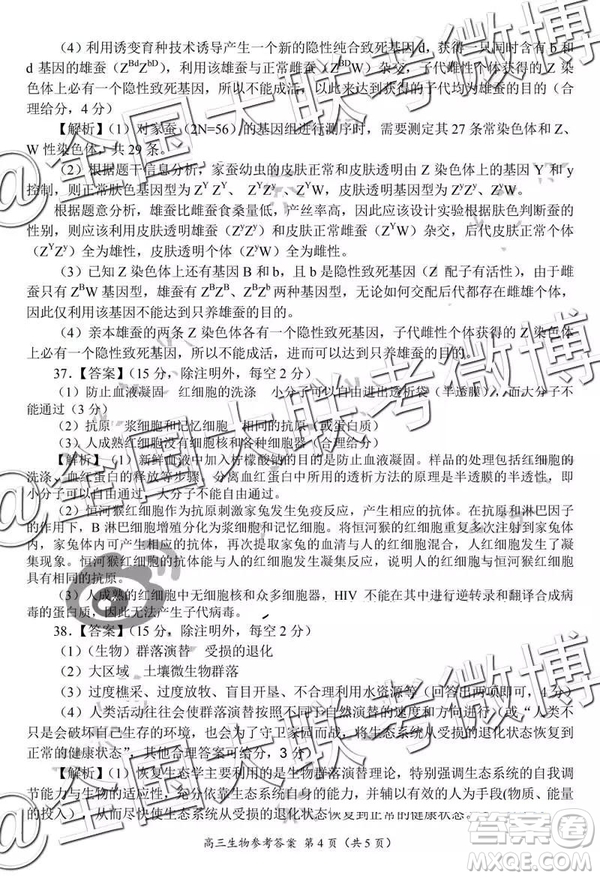 （4）利用诱变育种技术诱导产生一个新的隐性纯合致死基因 d，获得一只同时含有 b 和
d 基因的雄蚕（ZBdZbD），利用该雄蚕与正常雌蚕（ZBDW）杂交，子代雌性个体获得的 Z 染
色体上必有一个隐性致死基因，所以不能成活，因此达到获得的子代均为雄蚕的目的（合
理给分，4 分）
【解析】（1）对家蚕（2N=56）的基因组进行测序时，需要测定其 27 条常染色体和 Z、
W 性染色体，共 29 条。
（2）根据题干信息分析，家蚕幼虫的皮肤正常和皮肤透明由 Z 染色体上的基因 Y 和 y
控制，则正常肤色基因型为 ZYZY、ZYZy、ZYW，皮肤透明基因型为 ZyZy、ZyW。
根据题意分析，雄蚕比雌蚕食桑量低，产丝率高，因此应该设计实验根据肤色判断蚕的
性别，则应该利用皮肤透明（ZyZy）和皮肤正常（ZYW）杂交，后代皮肤正常个体
（ZYZy）全为雄性，皮肤透明个体（ZyW）全为雌性。
（3）已知 Z 染色体上还有基因 B 和 b，且 b 是隐性致死基因（Z 配子有活性），由于雌
蚕只有 ZBW 基因型，雄蚕有 ZBZB、ZBZb 两种基因型，无论怎么分配后代都存在雌雄个体，
因此仅利用该基因不能达到只养雄蚕的目的。
（4）亲本雄蚕的两条 Z 染色体各有一个隐性致死基因，子代雌性个体获得的 Z 染色体
上必有一个隐性致死基因，所以不能成活，进而可以达到只养雄蚕的目的。
37.【答案】（15 分，除注明外，每空 2 分）
（1）防止血液凝固 红细胞的洗涤 小分子可以自由进出透析袋（半透膜），而大分子不
能通过（3 分）
（2）抗原 浆细胞和记忆细胞 抗原（或蛋白质）
（3）人成熟红细胞无细胞核和各种细胞器（合理给分）
【解析】（1）新鲜血液中加入柠檬酸钠的目的是防止血液凝固。样品的处理包括红细胞的
洗涤、血红蛋白的释放等步骤 分离血红蛋白中所用的透析方法的原理是半透膜的半透性，即
小分子可以自由进出透析袋（半透膜），而大分子不能通过。
（2）恒河猴红细胞作为抗原刺激家兔发生免疫反应，产生相应的抗体。在抗原和淋巴因子
的作用下，B 淋巴细胞增殖分化为浆细胞和记忆细胞。因将恒河猴的红细胞多次注射到家兔体
内，家兔体内可产生相应的抗体，再次用含有这种抗体的血清与人的红细胞混合，人红细胞发生了凝
集现象。恒河猴红细胞的抗体能与人的红细胞凝集发生凝集反应，说明人的红细胞与恒河猴红细胞
具有相同的抗原。
（3）人成熟的红细胞中无细胞核和众多细胞器，HIV 不能在其中进行逆转录等过程合成病
毒的蛋白质，因此无法产生子代病毒。
38.【答案】（15 分，除注明外，每空 2 分）
（1）（生物）群落演替 受损的退化
（2）大区域 土壤微生物群落
（3）过度樵采、过度放牧、盲目开垦、不合理利用水资源等（回答出两项即可，4 分）
（4）人类活动往往会使群落演替按照不同于自然演替的速度和方向进行）或（“人类不
只是会破坏自己生存的环境，也会为了守卫家园而战，将生态系统从受损的退化状态恢复到
正常的健康状态”，其他合理答案可给分，3 分）
【解析】（1）恢复生态学主要利用的是生物群落演替理论，特别强调生态系统的自我调
节能力与生物的适应性，充分依靠生态系统自身的能力，并辅以有效的人为手段（物质、能量
的投入），从而尽快使生态系统从受损的退化状态恢复到正常的健康状态。
高三生物参考答案 第 4 页（共 5 页）
@全国大联考微博
@全国大联考微博
@全国大联考微博
答案圈
MXQE.COM